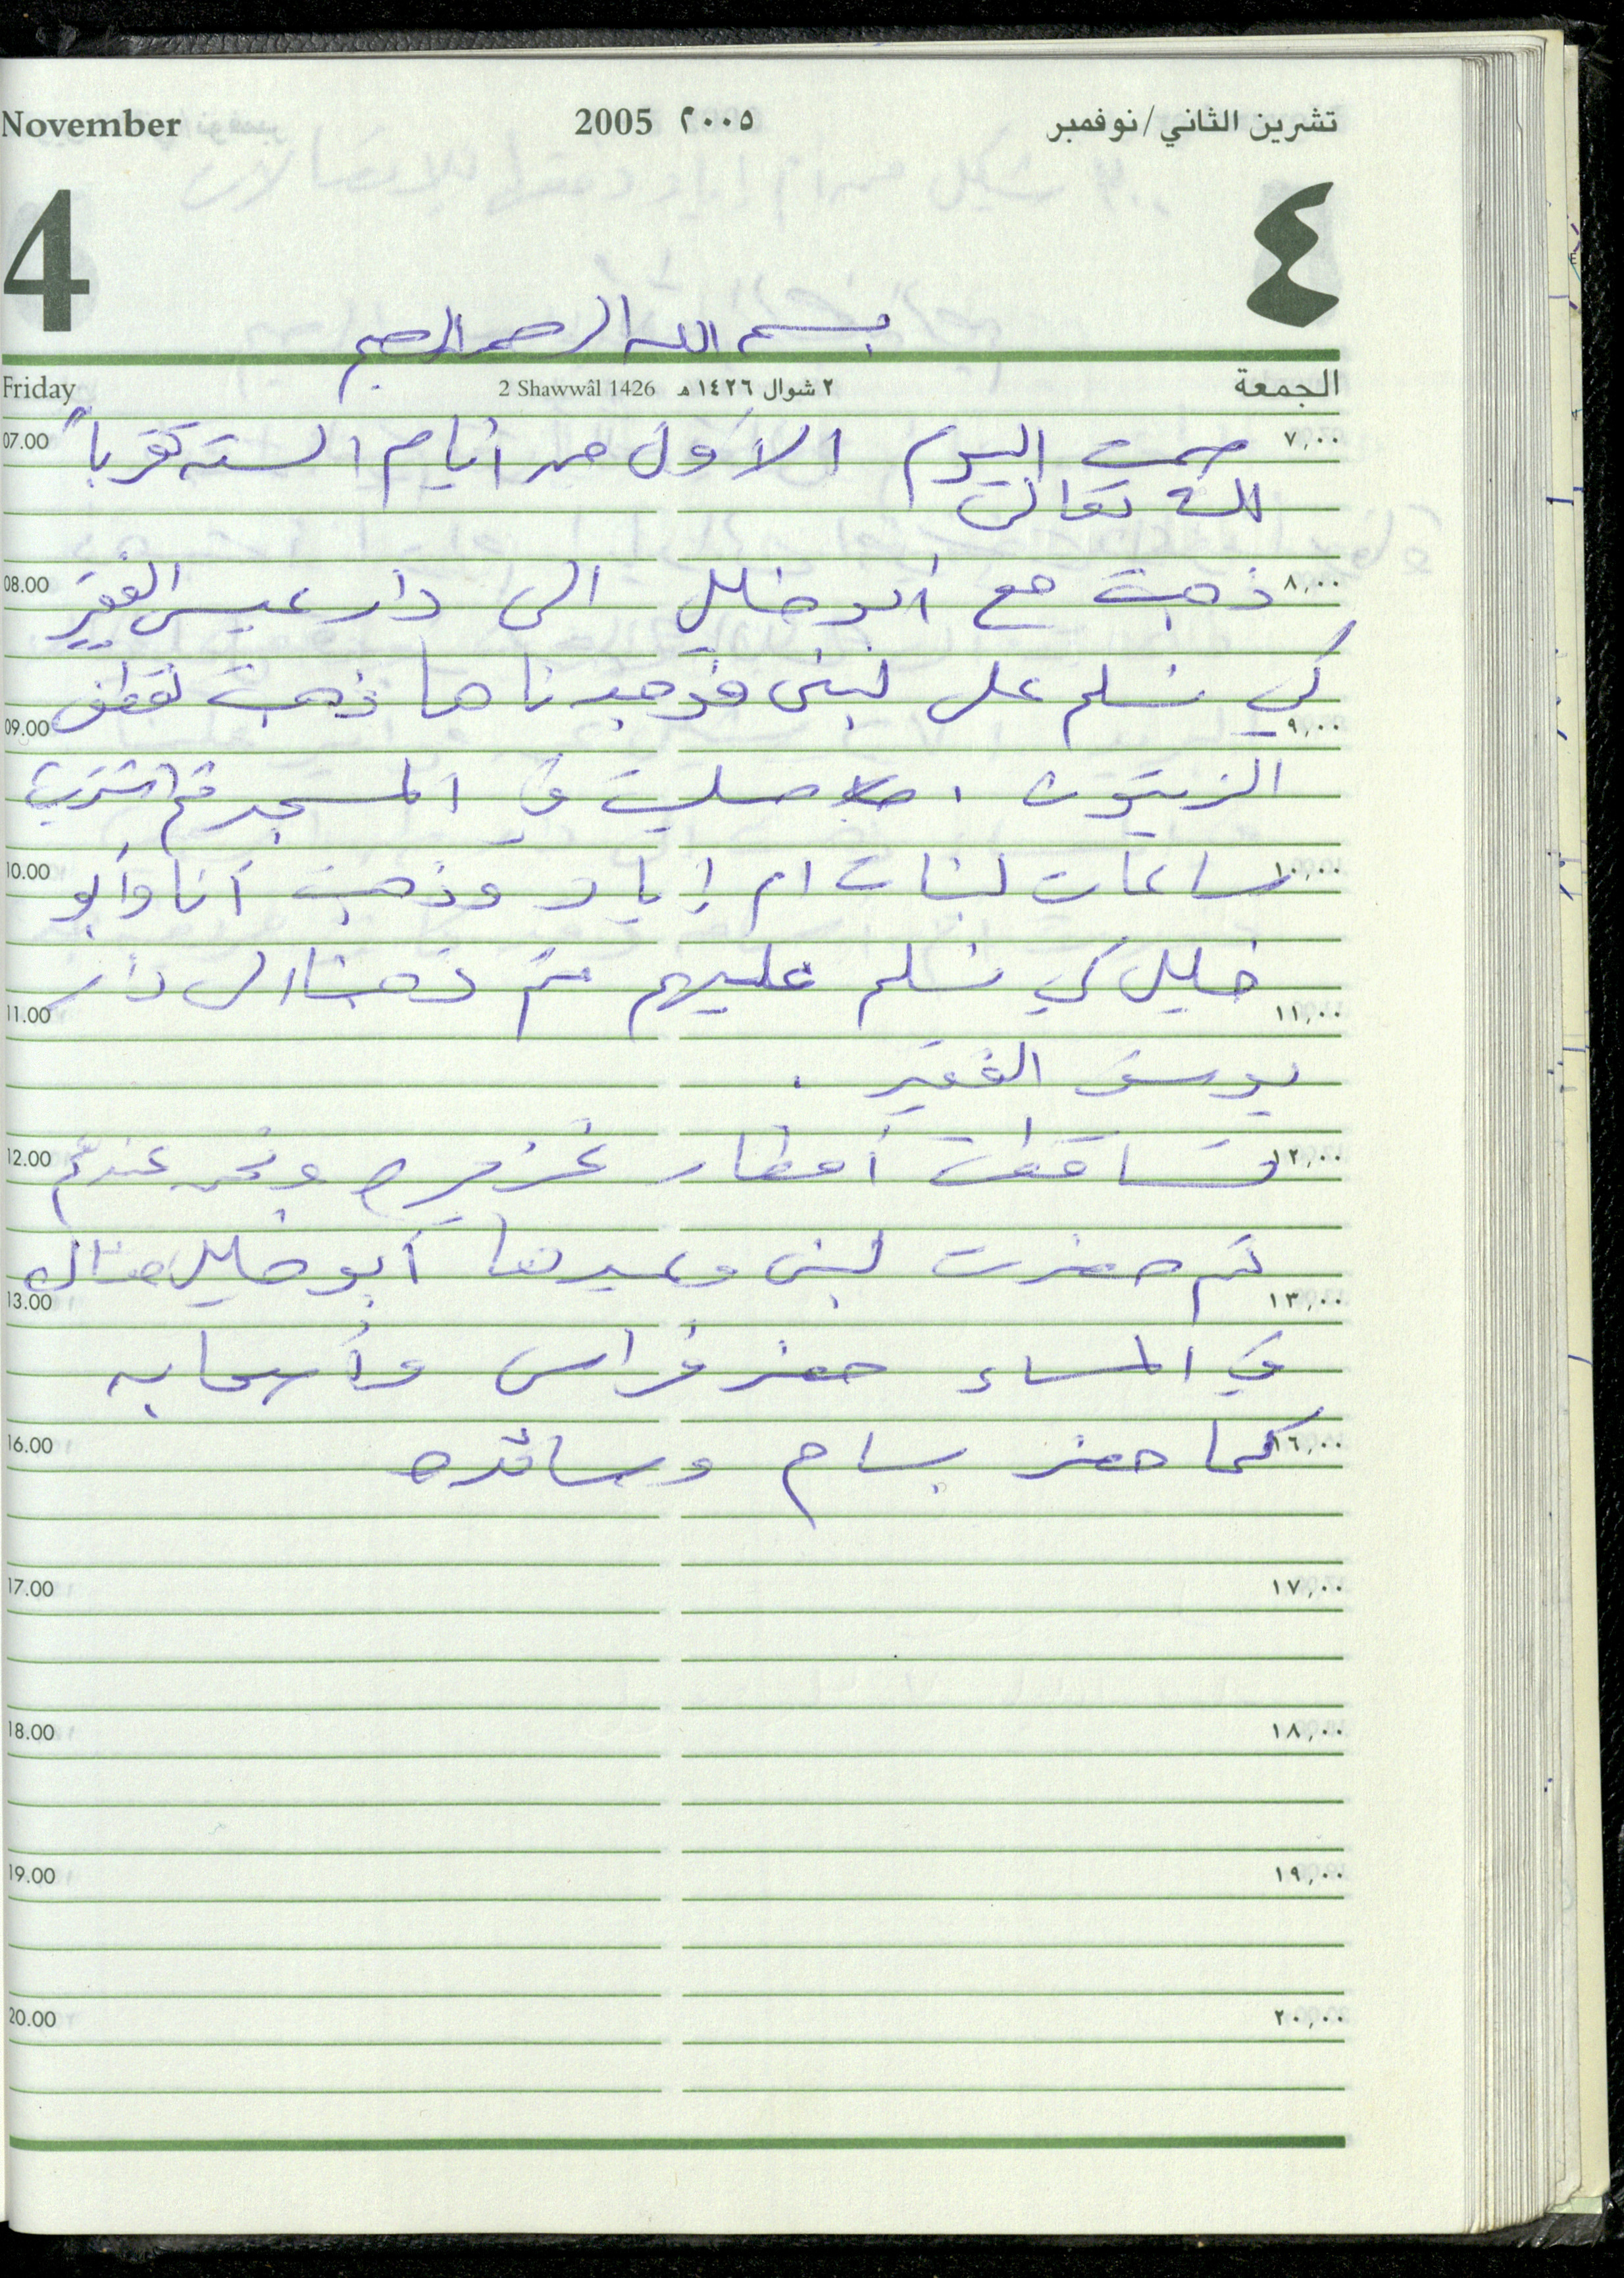 November 2005 ٢٠٠٥ تشرين الثاني/نوفمبر
4 ٤
بسم الله الرحمن الرحيم
Friday 2 Shawwâl 1426 ٢ شوال ١٤٢٦ هـ الجمعة
07.00 ٧,٠٠
صمت اليوم الأول من أيام الستة تقرباً
لله تعالى
08.00 ٨,٠٠
ذهبت مع أبو خليل الى دار عيسى الفقير
كي نسلم على لبنى فوجدناها ذهبت تقطف
09.00 ٩,٠٠
الزيتون . صليت في المسجد ثم اشتريت
10.00 ١٠,٠٠
ساعات لبنات ام إياد وذهبت أنا وأبو
خليل كي نسلم عليهم ثم ذهبنا الى دار
11.00 ١١,٠٠
يوسف الفقير .
12.00 ١٢,٠٠
تساقطت أمطار غزيرة ونحن عندهم
ثم حضرت لبنى وعيدها أبو خليل هناك
13.00 ١٣,٠٠
في المساء حضر فراس وأصحابه
16.00 ١٦,٠٠
كما حضر بسام وسائده
17.00 ١٧,٠٠
18.00 ١٨,٠٠
19.00 ١٩,٠٠
20.00 ٢٠,٠٠